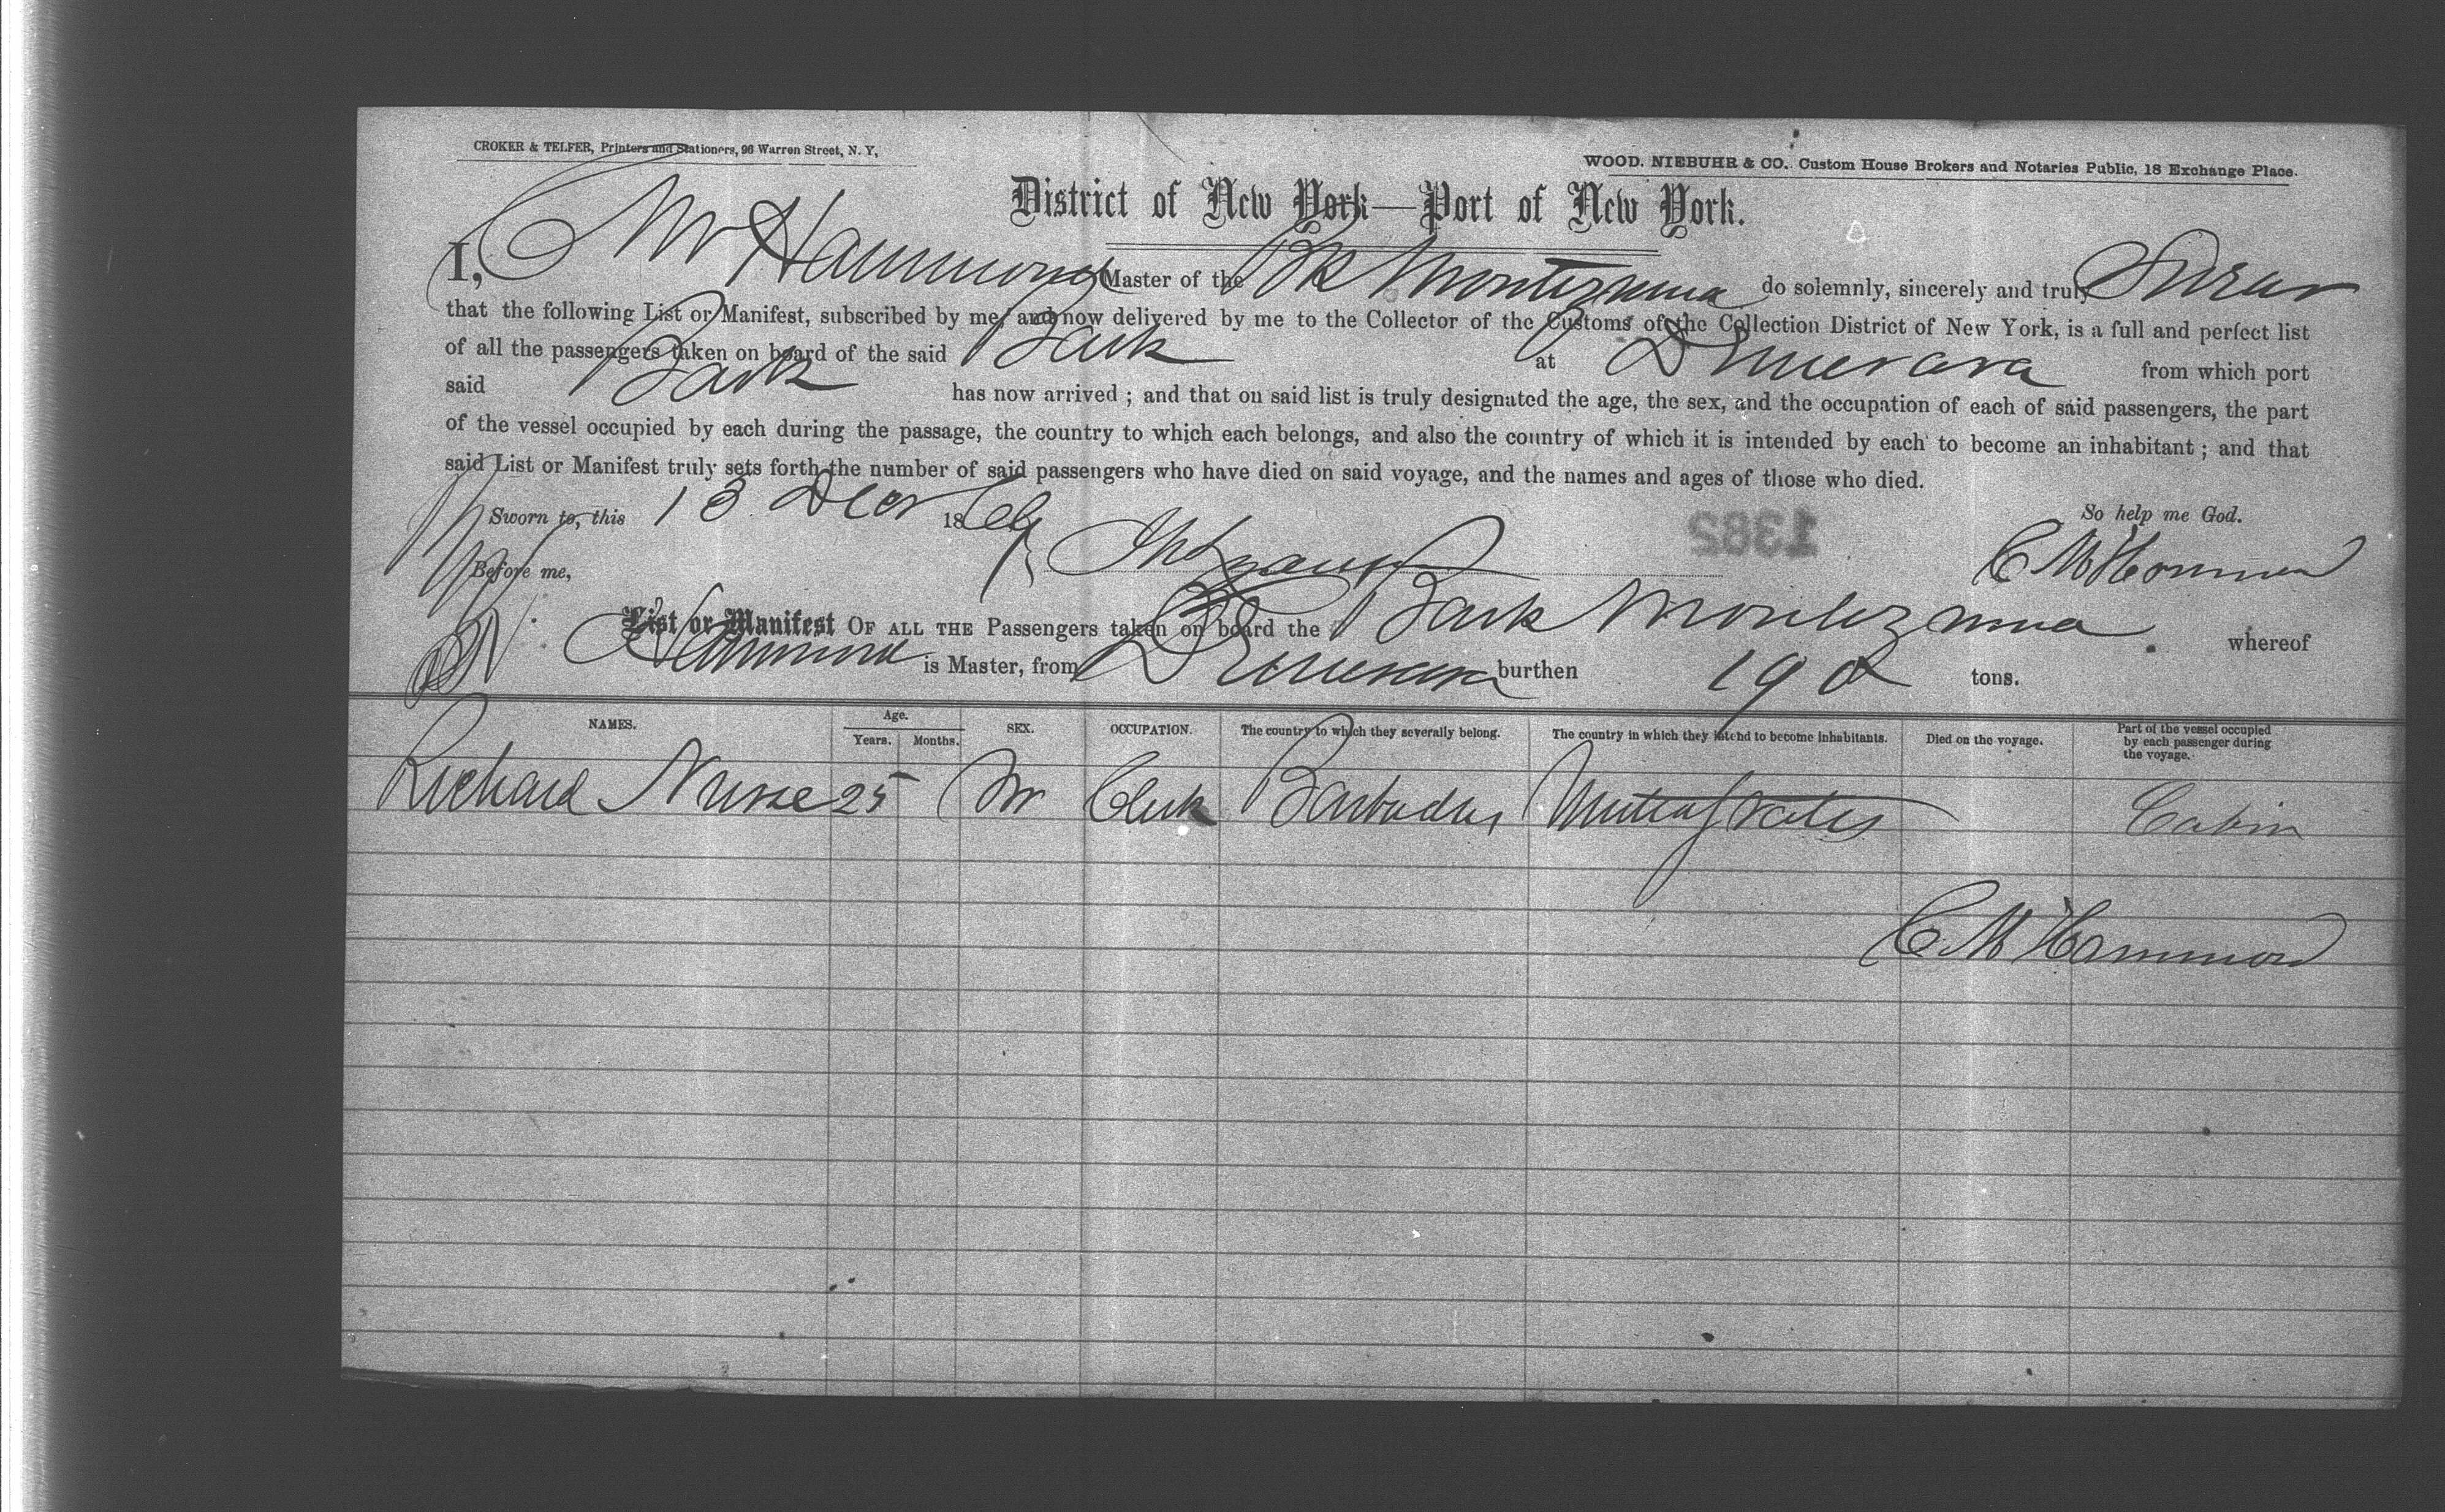 CROKER & TELFER, Printers and Stationers, 96 Warren Street, N. Y,
WOOD. NIEBUHR & CO. Custom House Brokers and Notaries Public, 18 Exchange Place.
District of New York—Port of New York.
I, C M Hammond Master of the Bk Montezuma do solemnly, sincerely and truly Swear
that the following List or Manifest, subscribed by me, and now delivered by me to the Collector of the Customs of the Collection District of New York, is a full and perfect list
of all the passengers taken on board of the said Bark at Demerara from which port
said Bark has now arrived ; and that on said list is truly designated the age, the sex, and the occupation of each of said passengers, the part
of the vessel occupied by each during the passage, the country to which each belongs, and also the country of which it is intended by each to become an inhabitant ; and that
said List or Manifest truly sets forth the number of said passengers who have died on said voyage, and the names and ages of those who died.
Sworn to, this 13 Decr 1869 So help me God.
1382
Before me, C M Hammond
List or Manifest OF ALL THE Passengers taken on board the Bark Montezuma whereof
Hammond is Master, from Demerara burthen 198 tons.
NAMES. Age. Years. Months. SEX. OCCUPATION. The country to which they severally belong. The country in which they intend to become inhabitants. Died on the voyage. Part of the vessel occupied by each passenger during the voyage.
Richard Nurse 25 M Clerk Barbados United States Cabin
C M Hammond